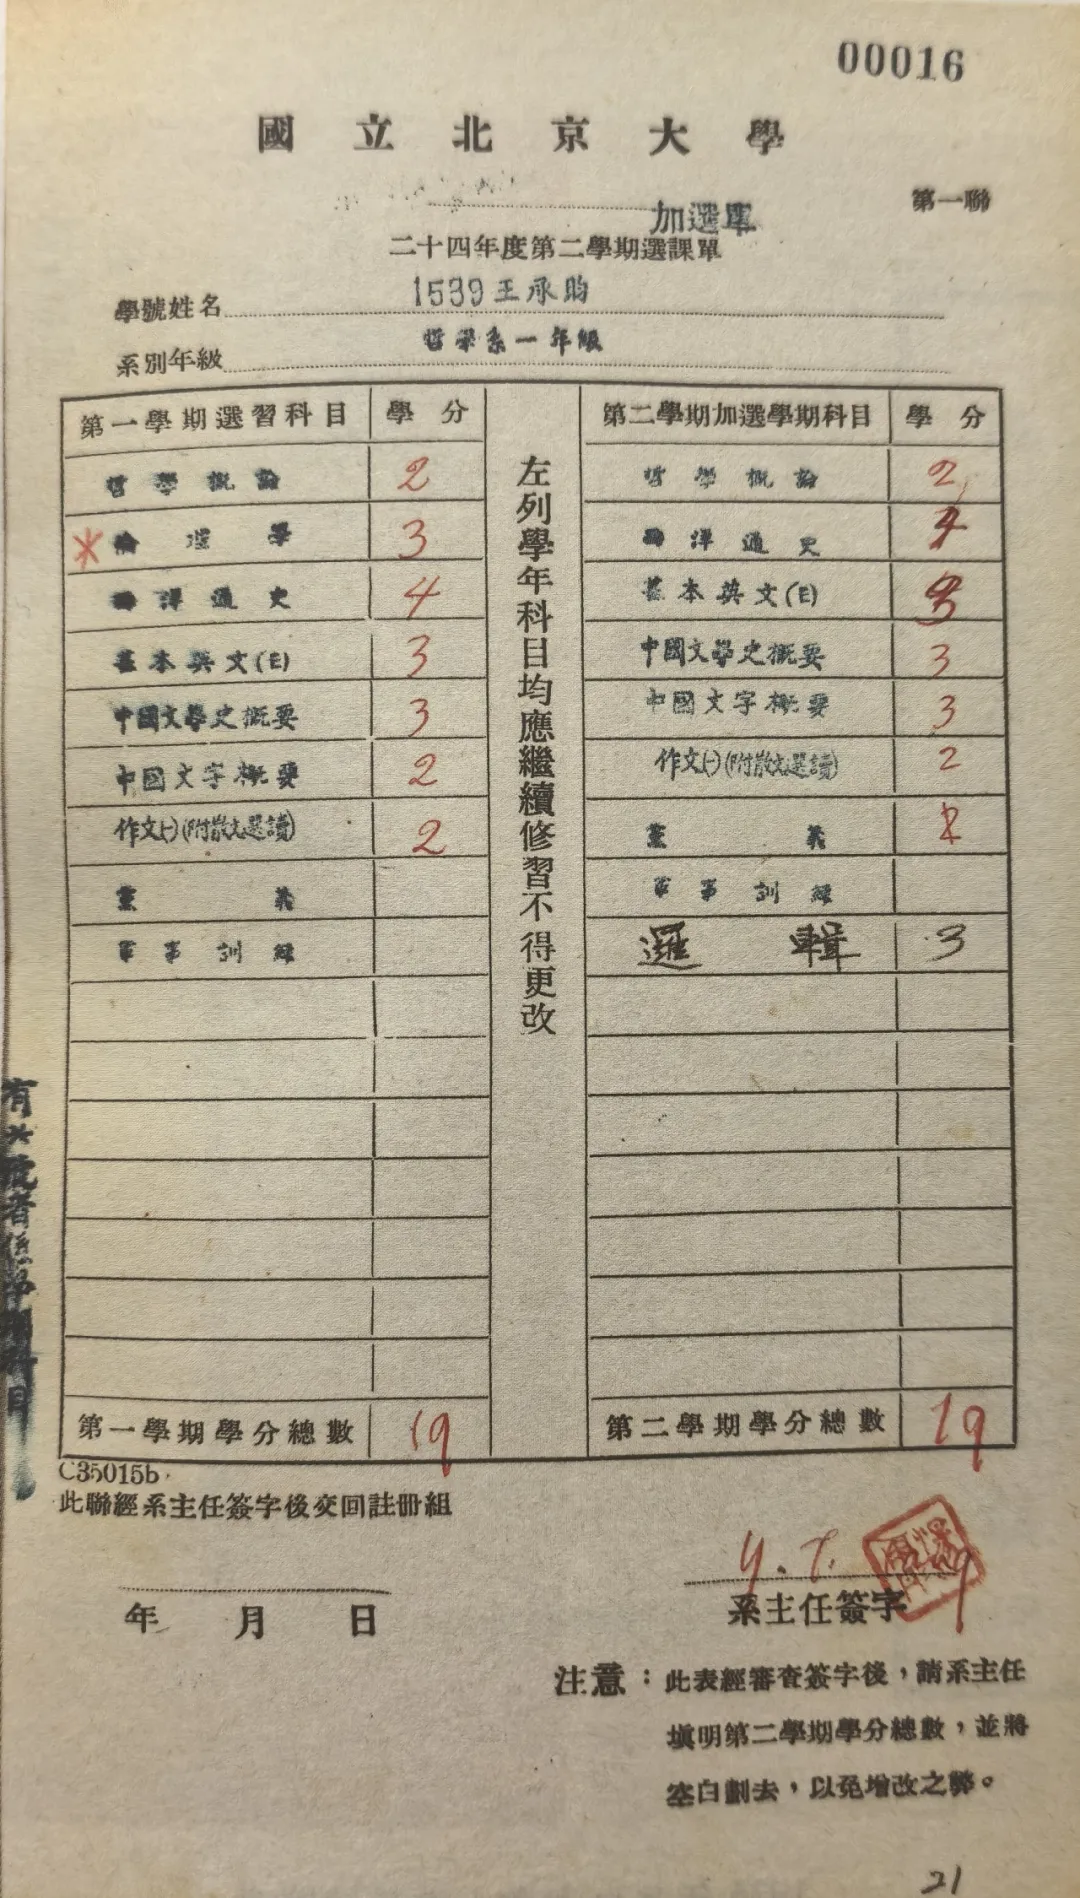 00016
國立北京大學
第一聯
加選單
二十四年度第二學期選課單
學號姓名 1539王承昀
系別年級 哲學系一年級
第一學期選習科目 學分
哲學概論 2
*倫理學 3
西洋通史 4
基本英文(E) 3
中國文學史概要 3
中國文字概要 2
作文(一)(附散文選讀) 2
黨義
軍事訓練
第一學期學分總數 19
左列學年科目均應繼續修習不得更改
第二學期加選學期科目 學分
哲學概論 2
西洋通史 4
基本英文(E) 3
中國文學史概要 3
中國文字概要 3
作文(一)(附散文選讀) 2
黨義
軍事訓練
邏輯 3
第二學期學分總數 19
有*號者係學期科目
C35015b
此聯經系主任簽字後交回註冊組
年 月 日
Y. T.
系主任簽字
注意：此表經審查簽字後，請系主任
填明第二學期學分總數，並將
空白劃去，以免增改之弊。
21